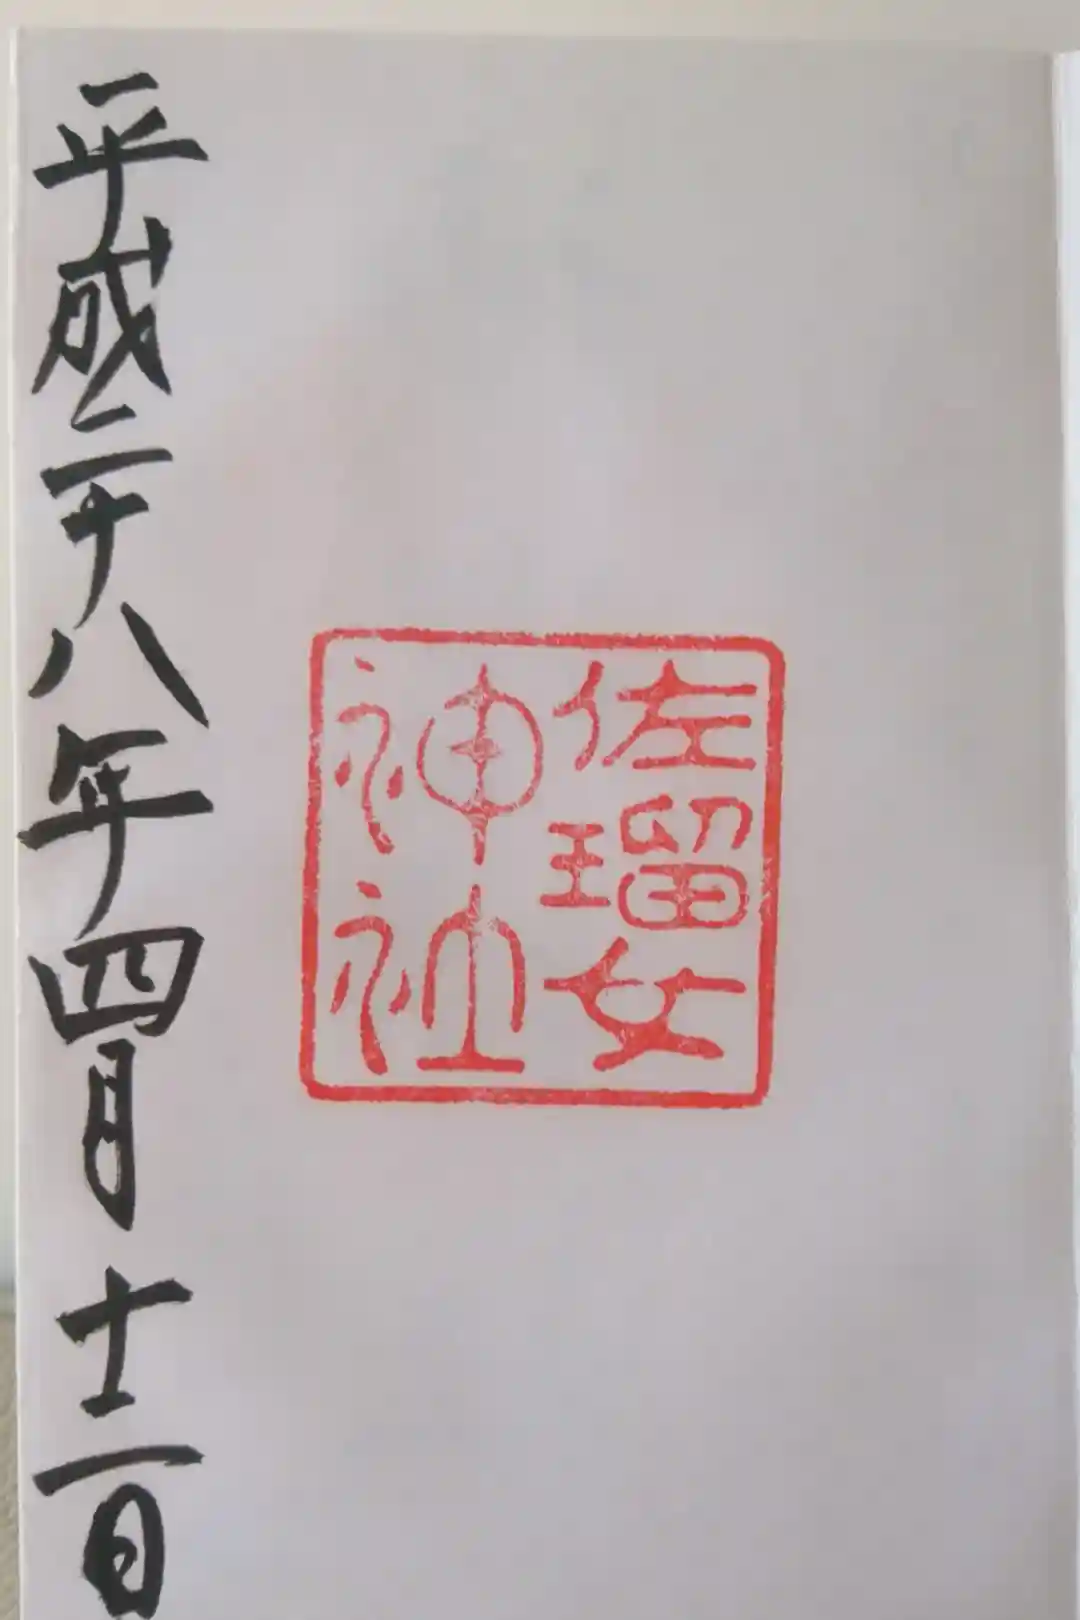 佐瑠女
神社
平成二十八年四月十二日